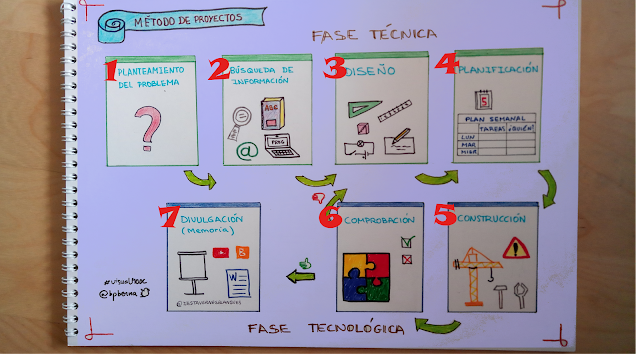 MÉTODO DE PROYECTOS
FASE TÉCNICA
1 PLANTEAMIENTO
DEL PROBLEMA
2 BÚSQUEDA DE
INFORMACIÓN
ABC
@
3 DISEÑO
4 PLANIFICACIÓN
5
PLAN SEMANAL
TAREAS ¿QUIÉN?
LUN
MAR
MIER
7 DIVULGACIÓN
(Memoria)
B
W
6 COMPROBACIÓN
5 CONSTRUCCIÓN
#visualthink
@bpbosna
FASE TECNOLÓGICA